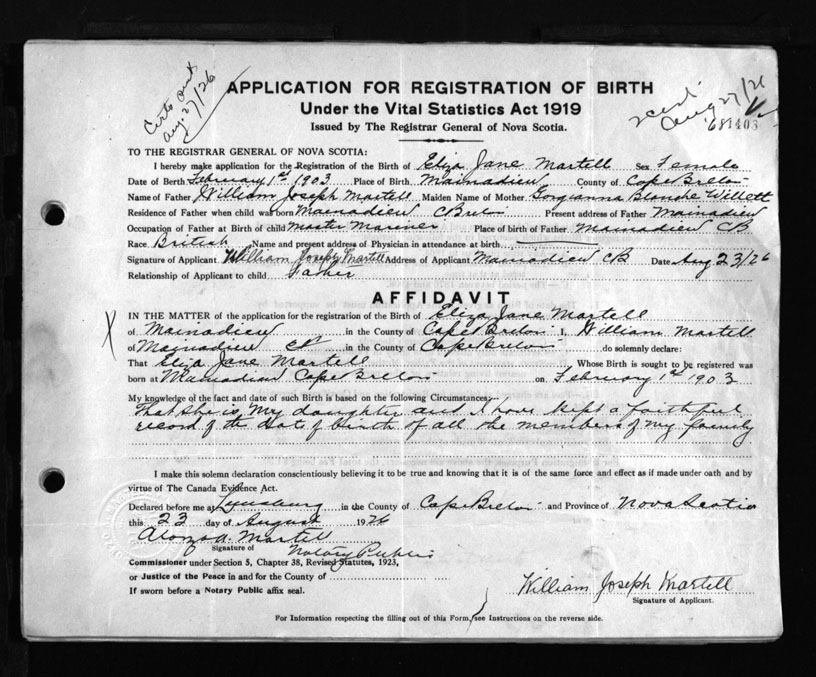 Certs out
Aug. 27/26
APPLICATION FOR REGISTRATION OF BIRTH
Under the Vital Statistics Act 1919
Issued by The Registrar General of Nova Scotia.
Aug 27/26
681403
TO THE REGISTRAR GENERAL OF NOVA SCOTIA:
I hereby make application for the Registration of the Birth of Eliza Jane Martell Sex Female
Date of Berth February 1st 1903 Place of Birth Mainadieu County of Cape Breton
Name of Father William Joseph Martell Maiden Name of Mother Gorgianna Blanche Willett
Residence of Father when child was born Mainadieu C Breton Present address of Father Mainadieu
Occupation of Father at Birth of child Master Mariner Place of birth of Father Mainadieu CB
Race British Name and present address of Physician in attendance at birth
Signature of Applicant William Joseph Martell Address of Applicant Mainadieu CB Date Aug 23/26
Relationship of Applicant to child Father
AFFIDAVIT
IN THE MATTER of the application for the registration of the Birth of Eliza Jane Martell
X of Mainadieu in the County of Cape Breton I, William Martell
of Mainadieu CB in the County of Cape Breton do solemnly declare:
That Eliza Jane Martell Whose Birth is sought to be registered was
born at Mainadieu Cape Breton on February 1st 1903
My knowledge of the fact and date of such Birth is based on the following Circumstances:—
That She is, my daughter and I have kept a faithful
record of the date of birth of all the members of my family
I make this solemn declaration conscientiously believing it to be true and knowing that it is of the same force and effect as if made under oath and by
virtue of The Canada Evidence Act.
Declared before me at in the County of Cape Breton and Province of Nova Scotia
this 23 day of August 1926
Alonzo A. Martell
Signature of Notary Public
Commissioner under Section 5, Chapter 38, Revised Statutes, 1923,
or Justice of the Peace in and for the County of
If sworn before a Notary Public affix seal.
William Joseph Martell
Signature of Applicant.
For Information respecting the filling out of this Form, see Instructions on the reverse side.